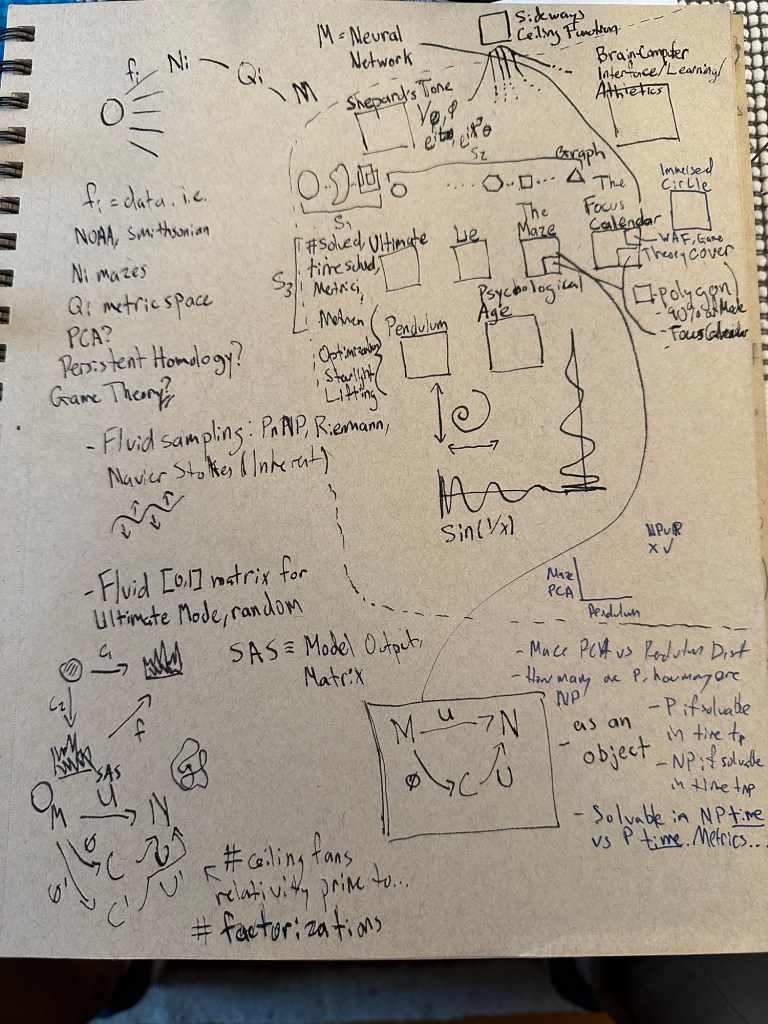 Sideways
Ceiling Function
M = Neural
Network
fi
Ni
Qi
M
Brain-Computer
Interface/Learning/
Athletics
Shepard's Tone
1/φ, φ
S2
Graph
S1
The
Focus
Calendar
Immersed
Circle
fi = data. i.e.
NOAA, Smithsonian
Ni mazes
Qi metric space
PCA?
Persistent Homology?
Game Theory?
S3
#solved,
time solved,
Metrici,
Optimization
Starlight
Lifting
Ultimate
Le
The
Maze
WAF, Game
Theory cover
Polygon
- 90% at Mode
- Focus Calendar
Psychological
Age
Pendulum
- Fluid sampling: PnNP, Riemann,
Navier Stokes (Inherent)
Sin(1/x)
NP u R
x ✓
Maze
PCA
Pendulum
- Fluid [0,1] matrix for
Ultimate Mode, random
SAS ≡ Model Output,
Matrix
- Maze PCA vs Pendulum Dist
- How many are P, how many are
NP
- P if solvable
in time tp
- NP if solvable
in time tnp
C1
C2
f
SAS
M u N
φ C U
- as an
object
- Solvable in NP time
vs P time. Metrics...
M U N
φ C U
φ' C' U'
# ceiling fans
relativity prime to...
# factorizations